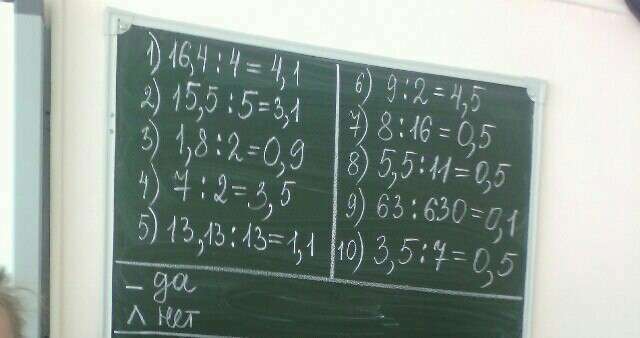 1) 16,4 : 4 = 4,1
2) 15,5 : 5 = 3,1
3) 1,8 : 2 = 0,9
4) 7 : 2 = 3,5
5) 13,13 : 13 = 1,1
6) 9 : 2 = 4,5
7) 8 : 16 = 0,5
8) 5,5 : 11 = 0,5
9) 63 : 630 = 0,1
10) 3,5 : 7 = 0,5
– да
Λ нет